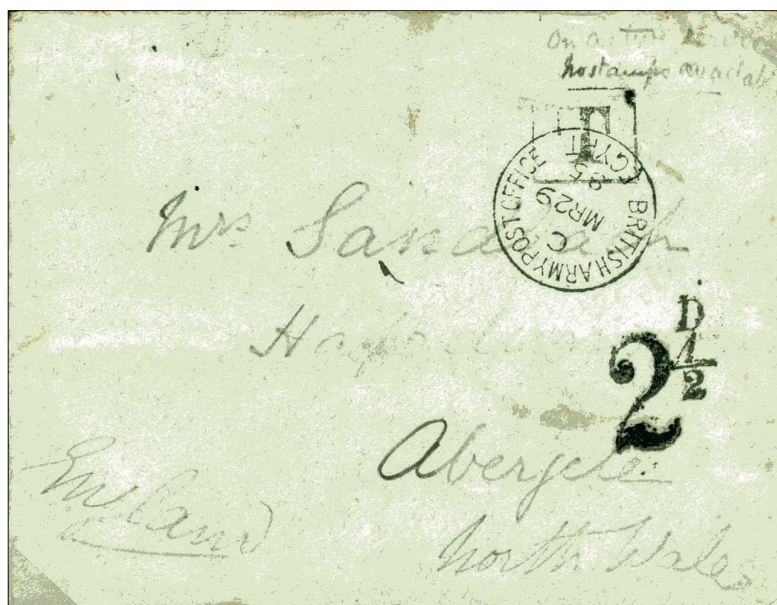 On active service
no stamps available
T
BRITISH ARMY POST OFFICE EGYPT
C
MR 29
85
Mrs Sandbach
2 1/2 D
Abergele
North Wales
England